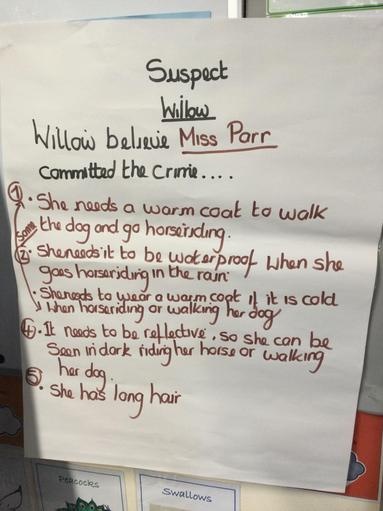 Suspect
Willow
Willow believe Miss Parr
committed the Crime....
1 • She needs a warm coat to walk
the dog and go horseriding.
Same
2 • She needs it to be waterproof when she
goes horseriding in the rain.
• She needs to wear a warm coat if it is cold
when horseriding or walking her dog
4 • It needs to be reflective, so she can be
Seen in dark riding her horse or walking
her dog.
5 • She has long hair
Peacocks
Swallows